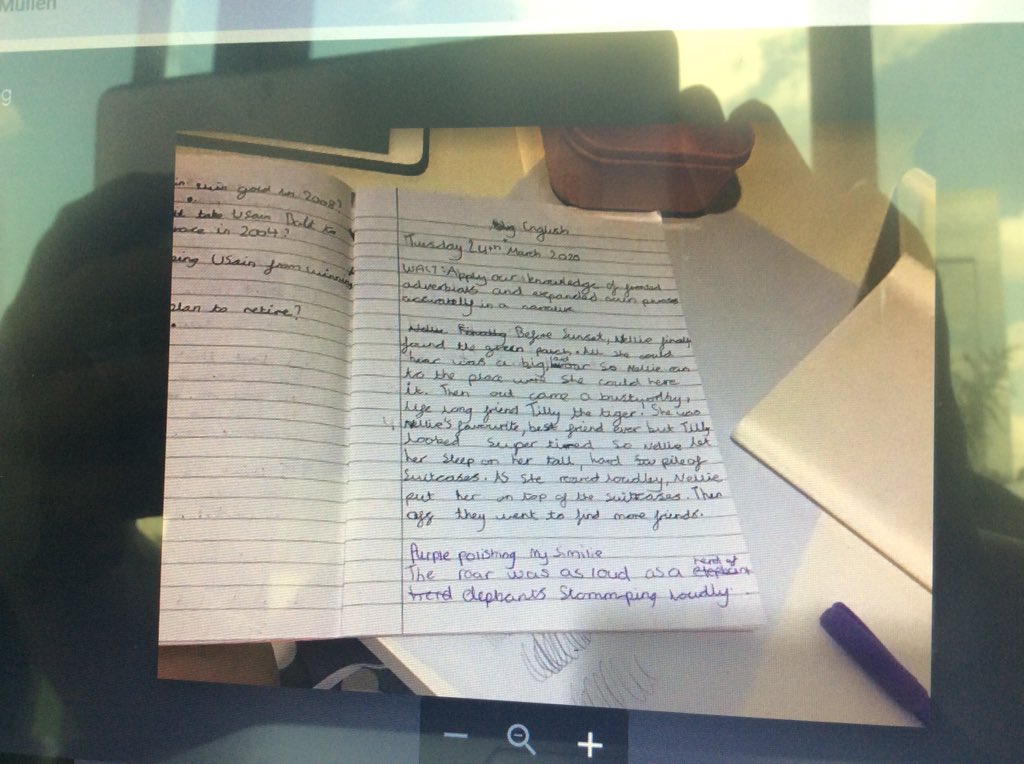 Mullen
g
win gold in 2008?
take Usain Bolt to
race in 2004?
ping Usain from winning
plan to retire?
English
Tuesday 24th March 2020
WALT: Apply our knowledge of fronted
adverbials and expanded noun phrases
accurately in a narrative
Before Sunset, Nellie finally
found the green patch. All she could
hear was a big, loud roar so Nellie ran
to the place were she could here
it. Then out came a trustworthy,
life long friend Tilly the tiger. She was
Nellie's favourite, best friend ever but Tilly
looked super tired so Nellie let
her sleep on her tall, hard pile of
suitcases. As she roared loudley, Nellie
put her on top of the suitcases. Then
off they went to find more friends.
Purple polishing My Similie
The roar was as loud as a herd of
elephants Stommping loudly.